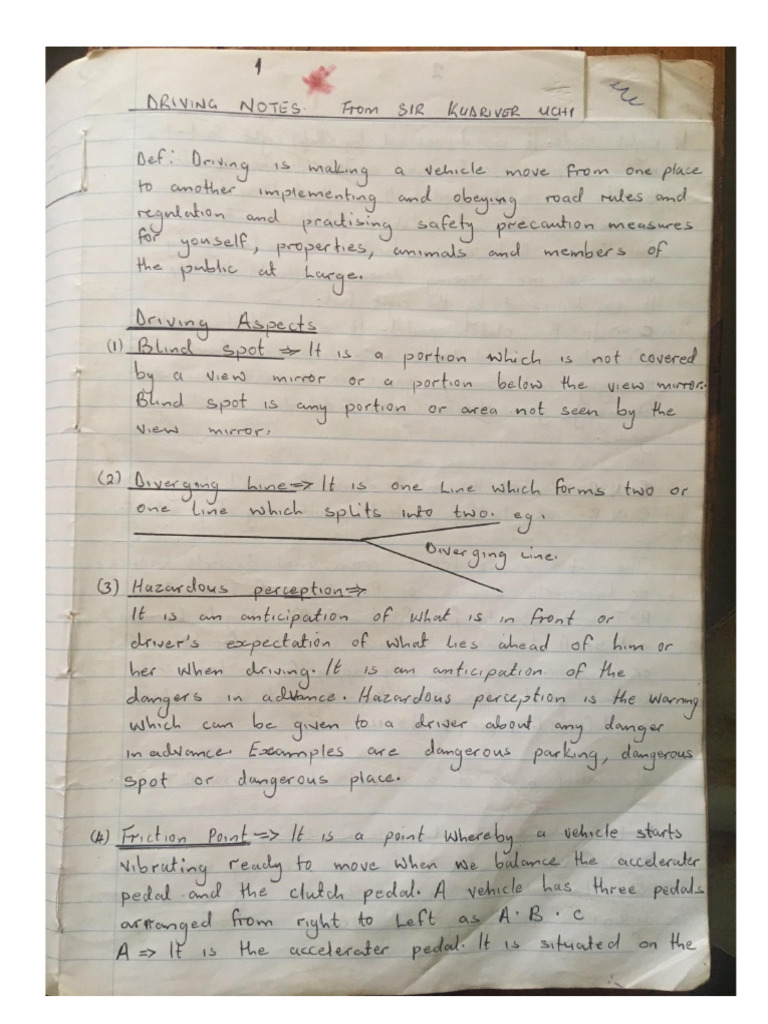 1
DRIVING NOTES. From SIR KUDRIVER UCHI
Def: Driving is making a vehicle move from one place
to another implementing and obeying road rules and
regulation and practising safety precaution measures
for youself, properties, animals and members of
the public at Large.
Driving Aspects
(1) Blind spot => It is a portion which is not covered
by a view mirror or a portion below the view mirror.
Blind spot is any portion or area not seen by the
view mirror.
(2) Diverging Line => It is one Line which forms two or
one Line which splits into two. eg.
Diverging Line.
(3) Hazardous perception =>
It is an anticipation of what is in front or
driver's expectation of what lies ahead of him or
her when driving. It is an anticipation of the
dangers in advance. Hazardous perception is the warning
which can be given to a driver about any danger
in advance. Examples are dangerous parking, dangerous
spot or dangerous place.
(4) Friction Point => It is a point whereby a vehicle starts
vibrating ready to move when we balance the accelerater
pedal and the clutch pedal. A vehicle has three pedals
arranged from right to Left as A. B. C
A => It is the accelerater pedal. It is situated on the